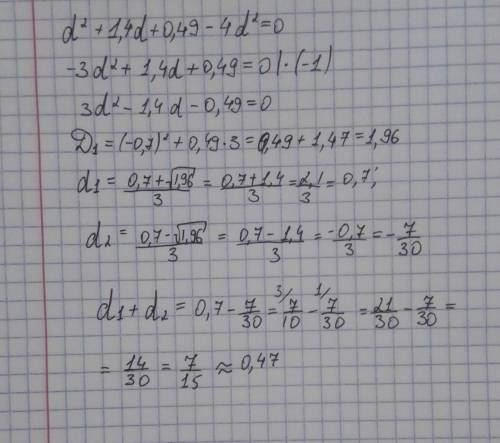 d² + 1,4d + 0,49 - 4d² = 0
-3d² + 1,4d + 0,49 = 0 | · (-1)
3d² - 1,4d - 0,49 = 0
D₁ = (-0,7)² + 0,49·3 = 0,49 + 1,47 = 1,96
d₁ = (0,7+√1,96)/3 = (0,7+1,4)/3 = 2,1/3 = 0,7;
d₂ = (0,7-√1,96)/3 = (0,7-1,4)/3 = -0,7/3 = -7/30
d₁ + d₂ = 0,7 - 7/30 = ³⁄ 7/10 - ¹⁄ 7/30 = 21/30 - 7/30 =
= 14/30 = 7/15 ≈ 0,47